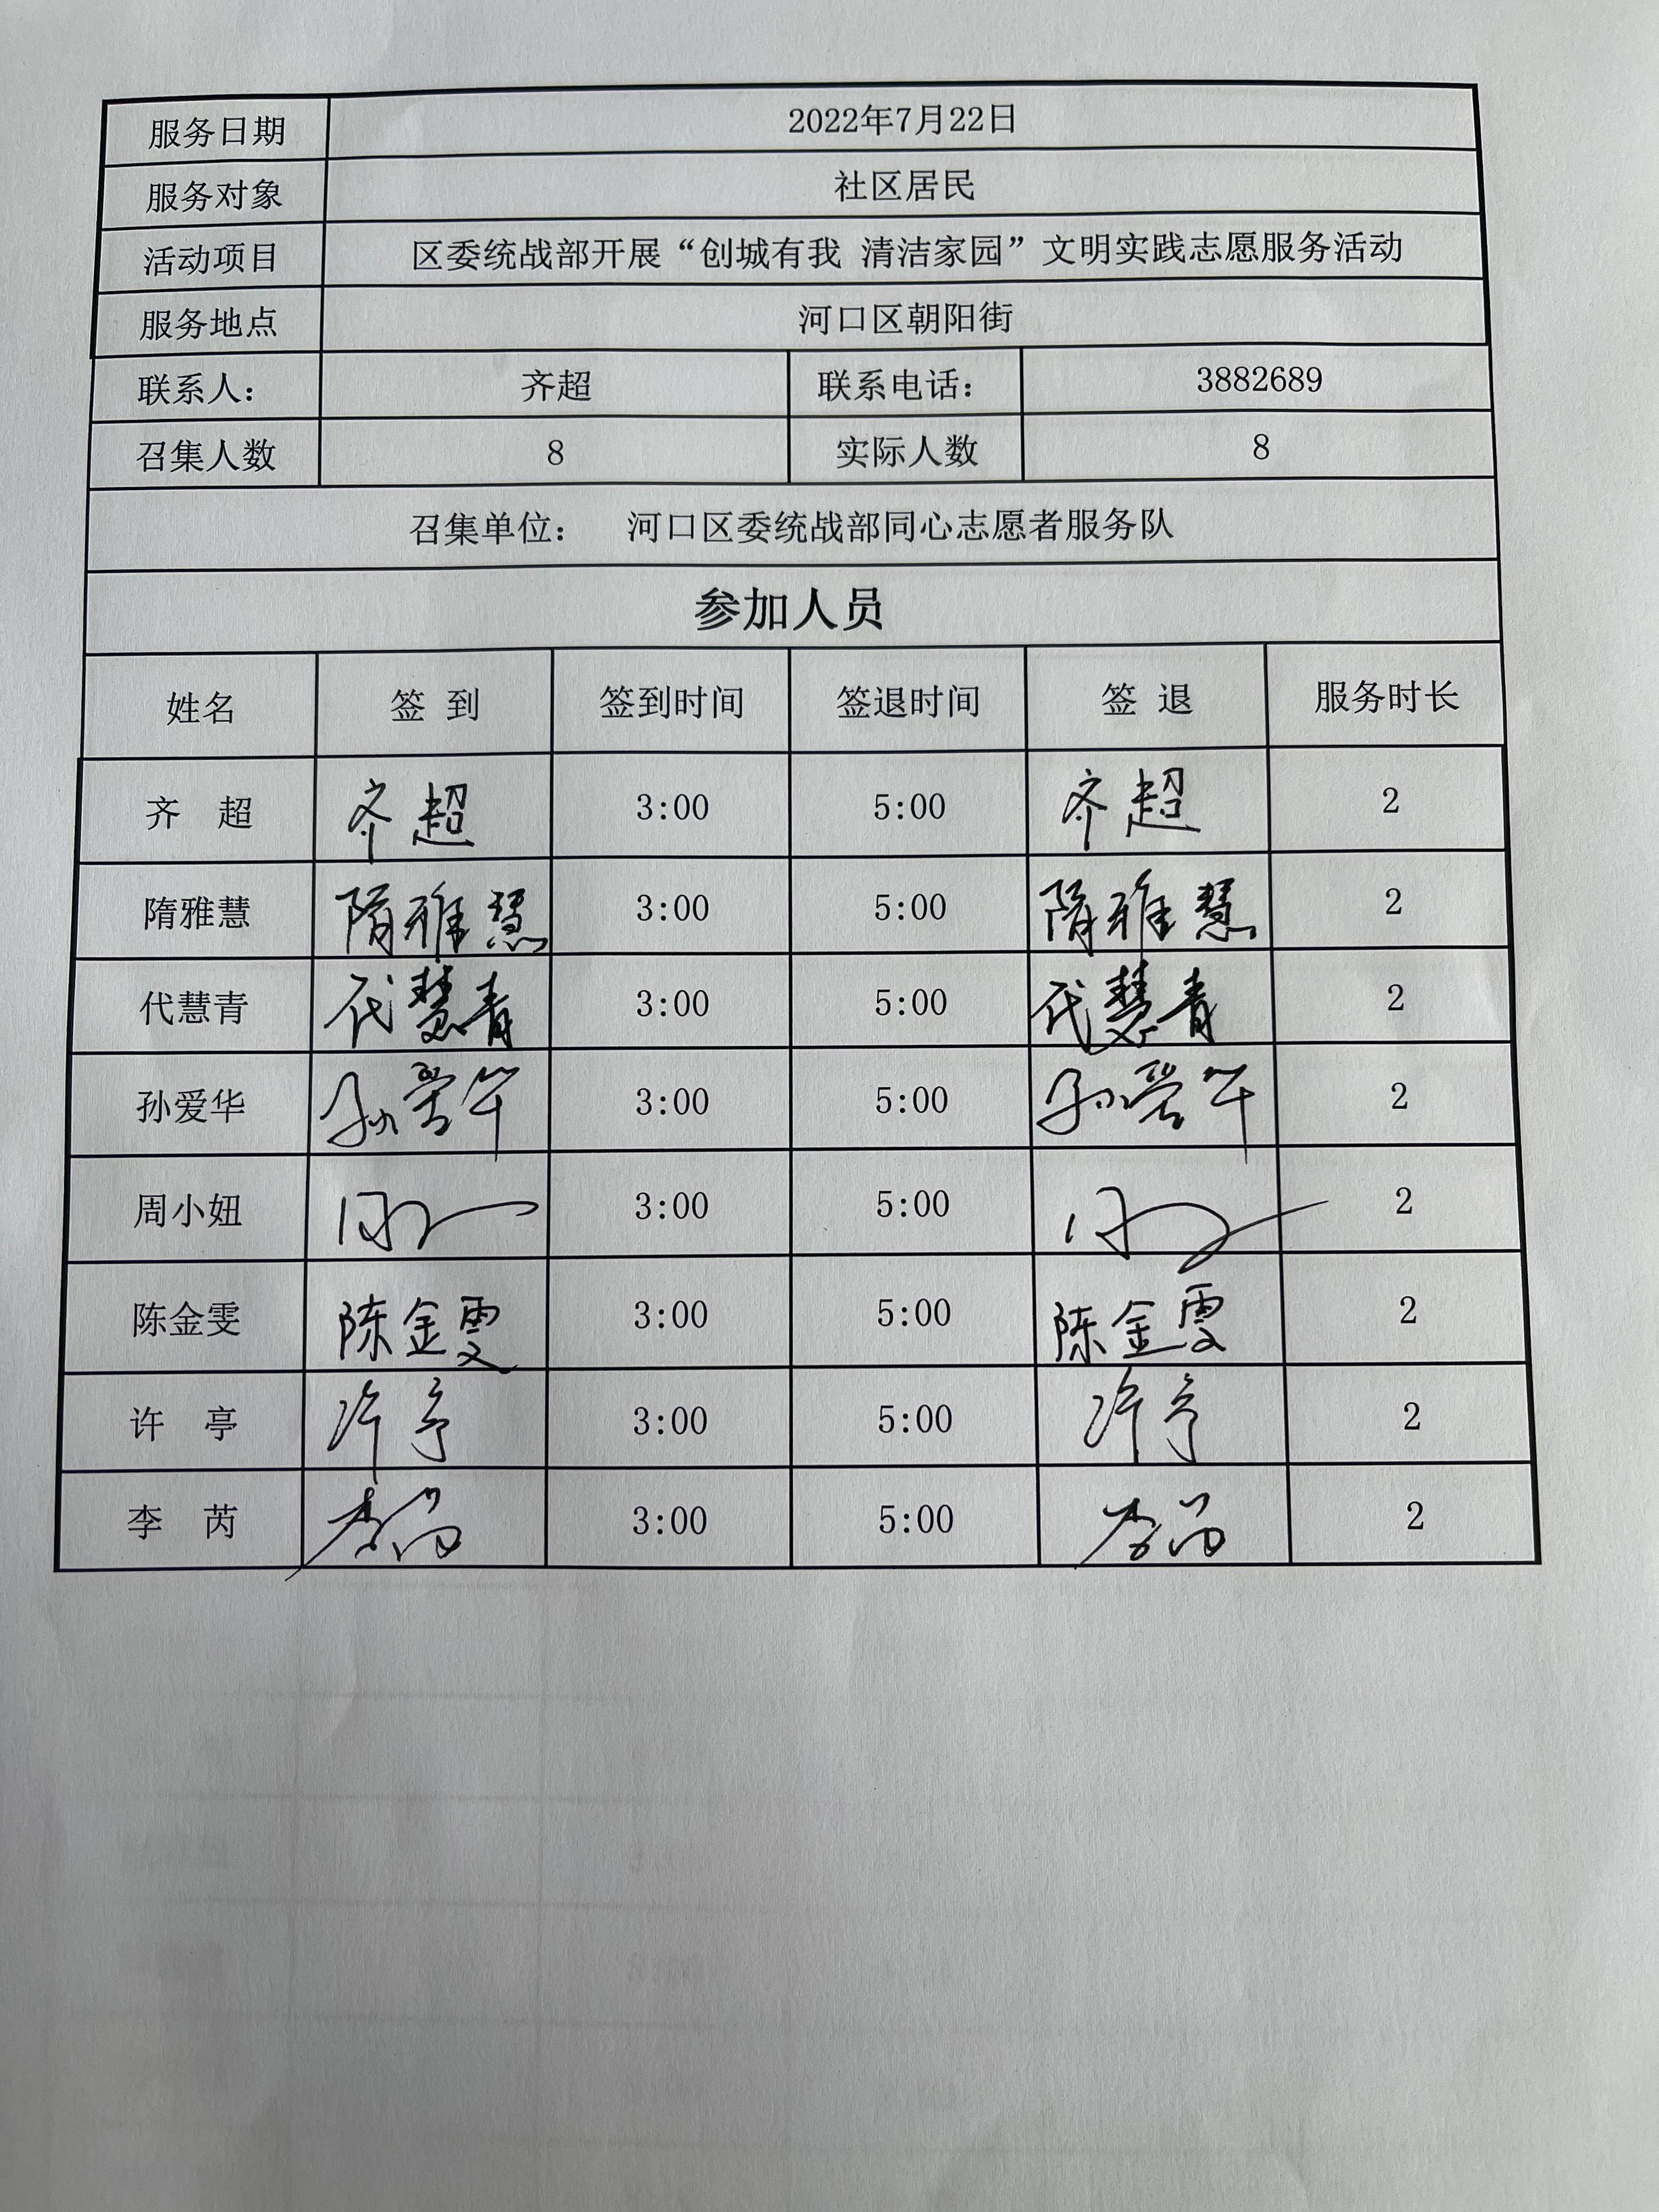 服务日期 2022年7月22日
服务对象 社区居民
活动项目 区委统战部开展“创城有我 清洁家园”文明实践志愿服务活动
服务地点 河口区朝阳街
联系人： 齐超 联系电话： 3882689
召集人数 8 实际人数 8
召集单位： 河口区委统战部同心志愿者服务队
参加人员
姓名 签 到 签到时间 签退时间 签 退 服务时长
齐 超 齐超 3:00 5:00 齐超 2
隋雅慧 隋雅慧 3:00 5:00 隋雅慧 2
代慧青 代慧青 3:00 5:00 代慧青 2
孙爱华 孙爱华 3:00 5:00 孙爱华 2
周小妞 3:00 5:00 2
陈金雯 陈金雯 3:00 5:00 陈金雯 2
许 亭 许亭 3:00 5:00 许亭 2
李 芮 李芮 3:00 5:00 李芮 2